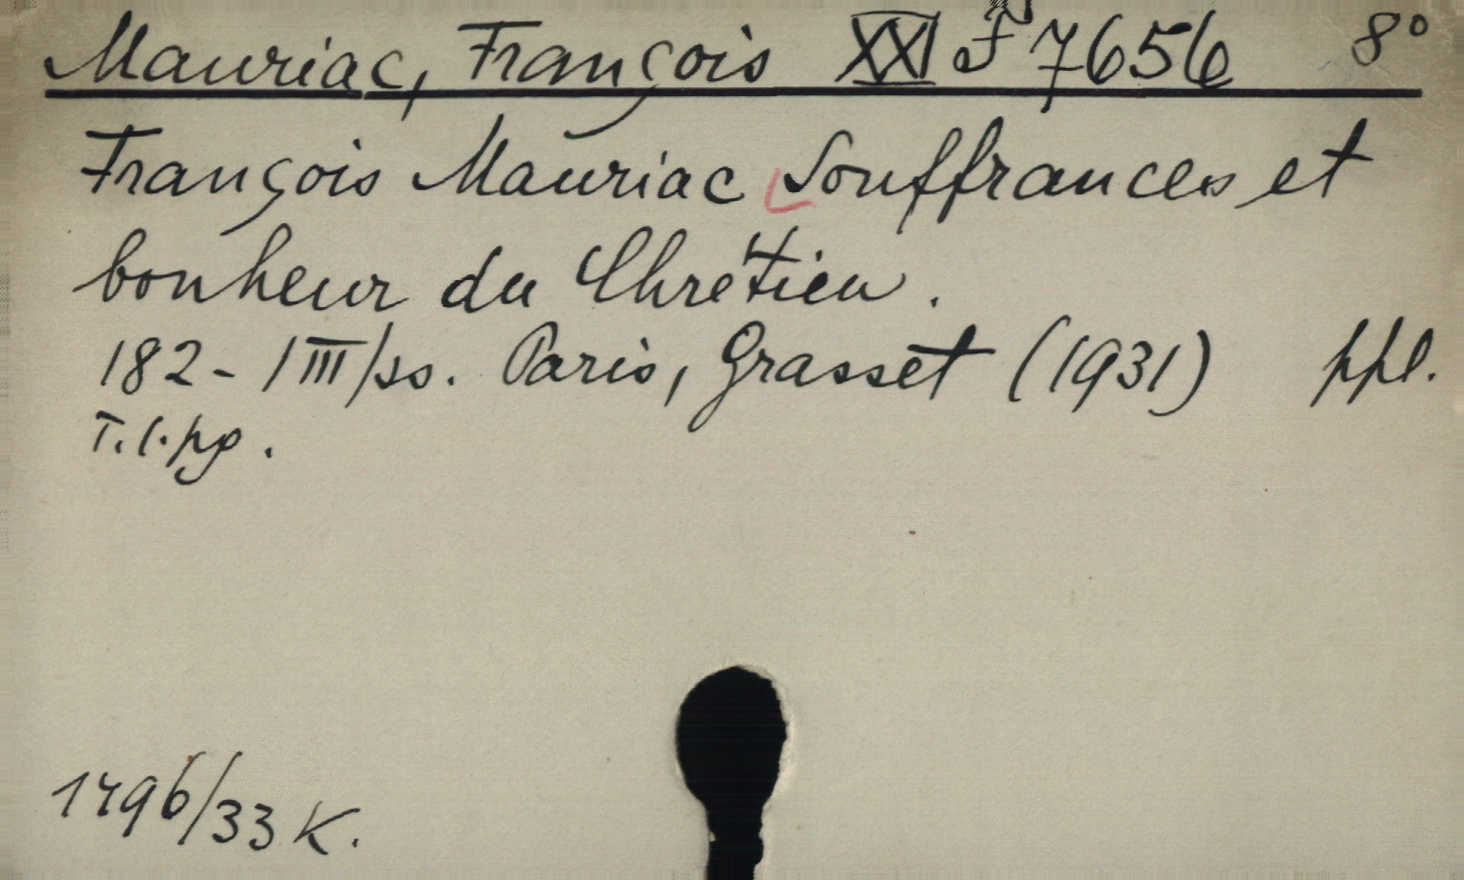 Mauriac, François XXI F 7656 8°
François Mauriac Souffrances et
bonheur du Chrétien.
182-1III/ss. Paris, Grasset (1931) ppl.
T.l.pg.
1496/33 K.